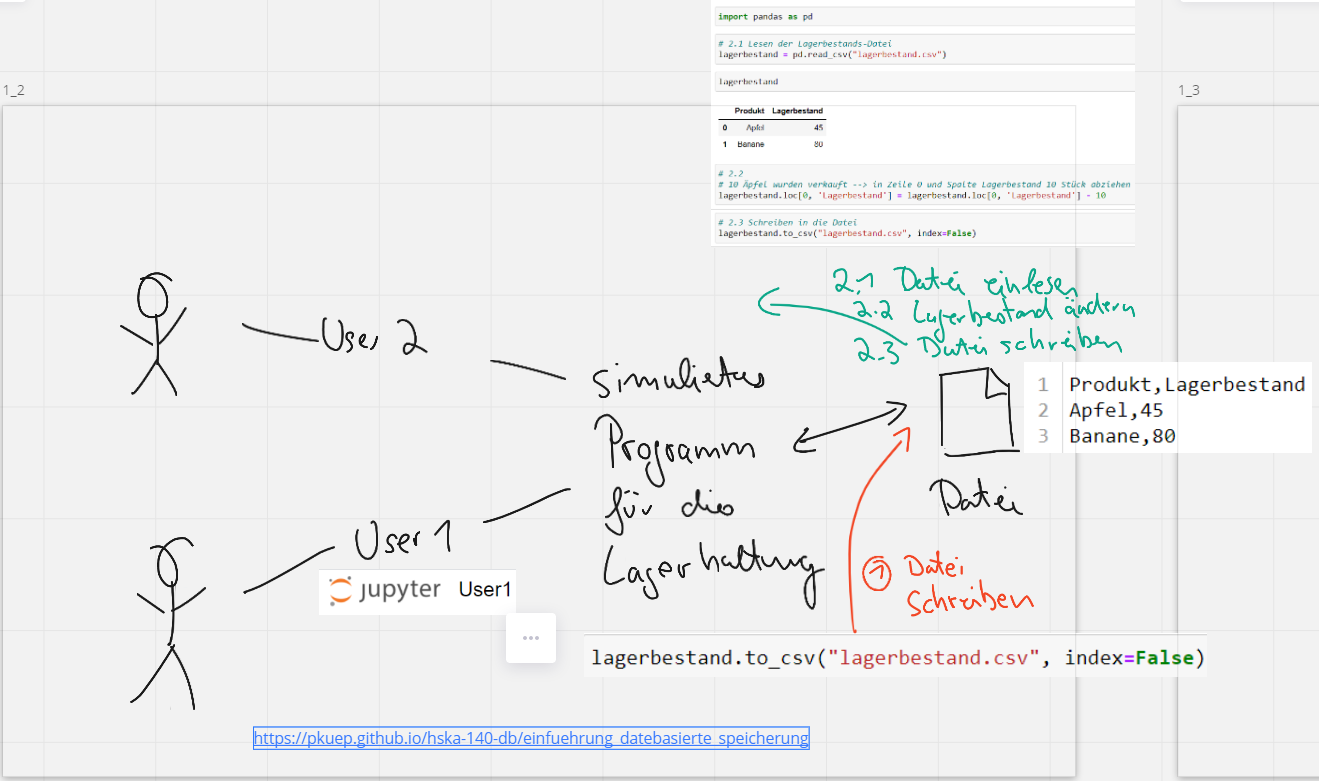 import pandas as pd
# 2.1 Lesen der Lagerbestands-Datei
lagerbestand = pd.read_csv("lagerbestand.csv")
lagerbestand
Produkt Lagerbestand
0 Apfel 45
1 Banane 80
# 2.2
# 10 Äpfel wurden verkauft --> in Zeile 0 und Spalte Lagerbestand 10 Stück abziehen
lagerbestand.loc[0, 'Lagerbestand'] = lagerbestand.loc[0, 'Lagerbestand'] - 10
# 2.3 Schreiben in die Datei
lagerbestand.to_csv("lagerbestand.csv", index=False)
1_2
1_3
2.1 Datei einlesen
2.2 Lagerbestand ändern
2.3 Datei schreiben
User 2
simuliertes
Programm
für die
Lagerhaltung
1 Produkt,Lagerbestand
2 Apfel,45
3 Banane,80
Datei
User 1
jupyter User1
1 Datei
schreiben
lagerbestand.to_csv("lagerbestand.csv", index=False)
https://pkuep.github.io/hska-140-db/einfuehrung_datebasierte_speicherung